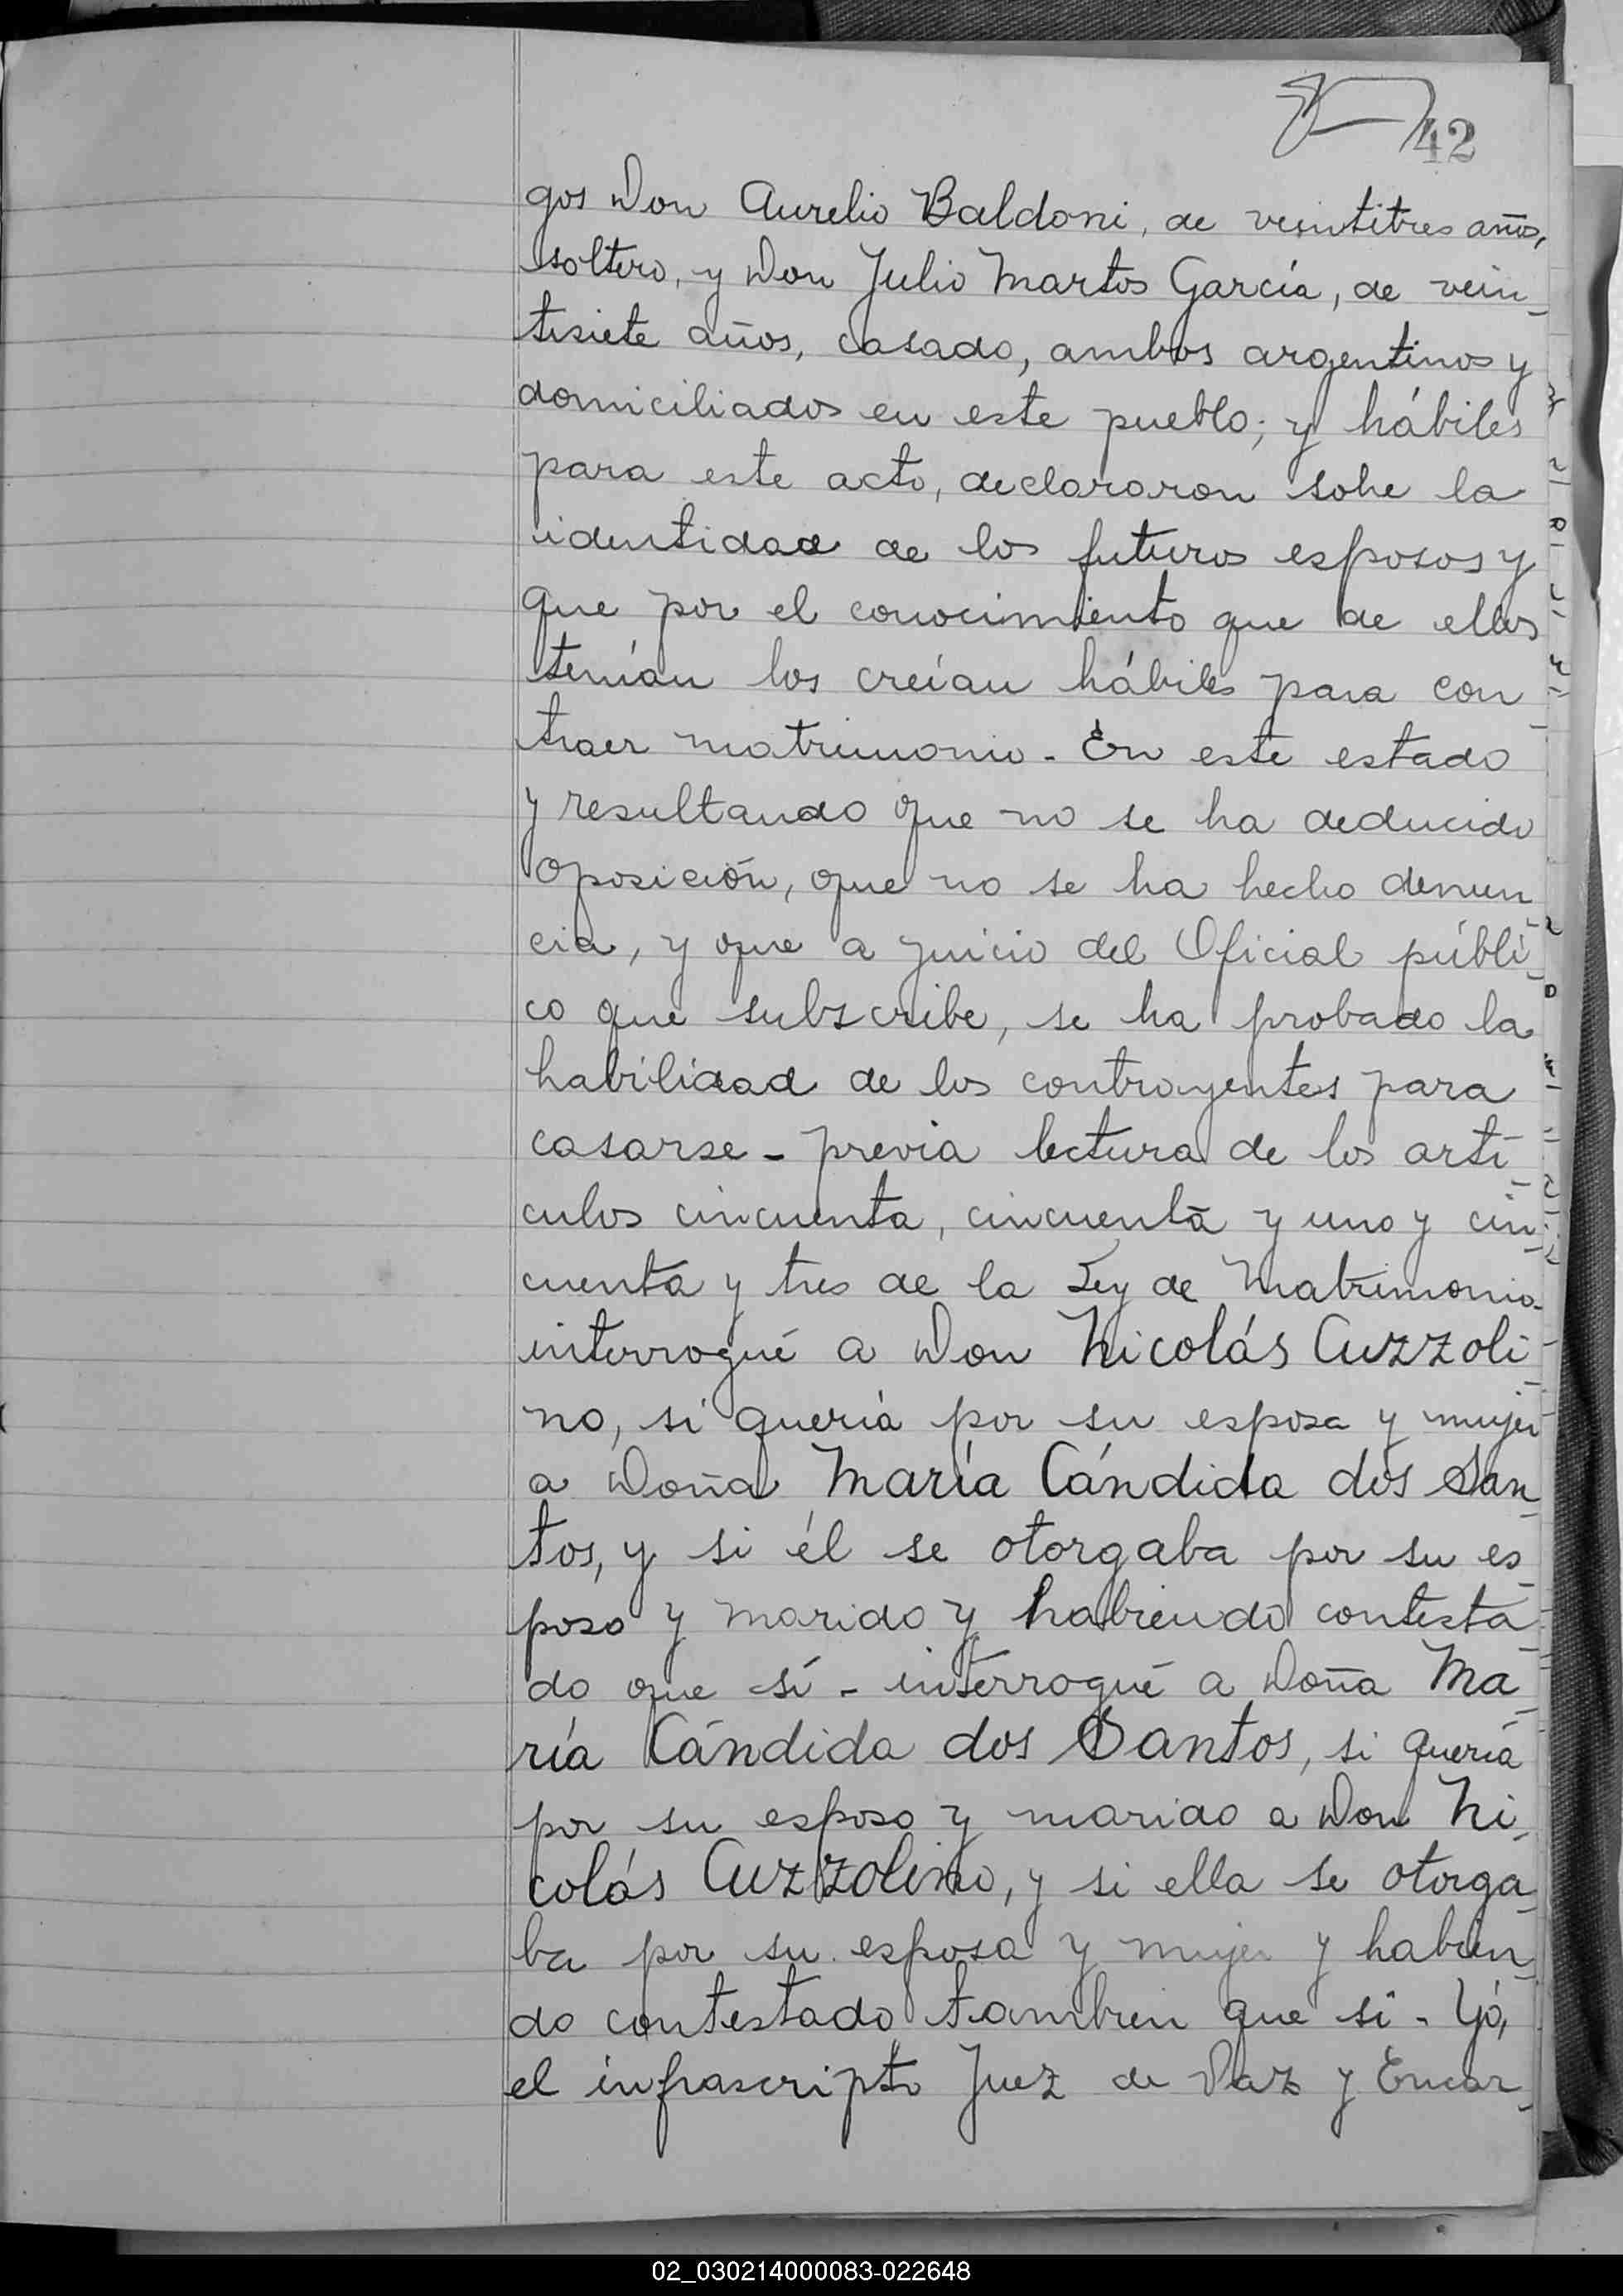 42
gos Don Aurelio Baldoni, de veintitres años,
soltero, y Don Julio Martos García, de vein-
tisiete años, casado, ambos argentinos y
domiciliados en este pueblo; y hábiles
para este acto, declararon sobe la
identidad de los futuros esposos y
que por el conocimiento que de ellos
tenían los creían hábiles para con-
traer matrimonio - En este estado
y resultando que no se ha deducido
oposición, que no se ha hecho denun-
cia, y que a juicio del Oficial públi-
co que subscribe, se ha probado la
habilidad de los contrayentes para
casarse - previa lectura de los artí-
culos cincuenta, cincuenta y uno y cin-
cuenta y tres de la Ley de Matrimonio
interrogué a Don Nicolás Cuzzoli-
no, si quería por su esposa y mujer
a Doña María Cándida dos San-
tos, y si él se otorgaba por su es-
poso y marido y habiendo contesta-
do que sí - interrogué a Doña Ma-
ría Cándida dos Santos, si quería
por su esposo y marido a Don Ni-
colás Cuzzolino, y si ella se otorga-
ba por su esposa y mujer y habien-
do contestado tambien que si - Yó,
el infrascripto Juez de Paz y Encar-
02_030214000083-022648